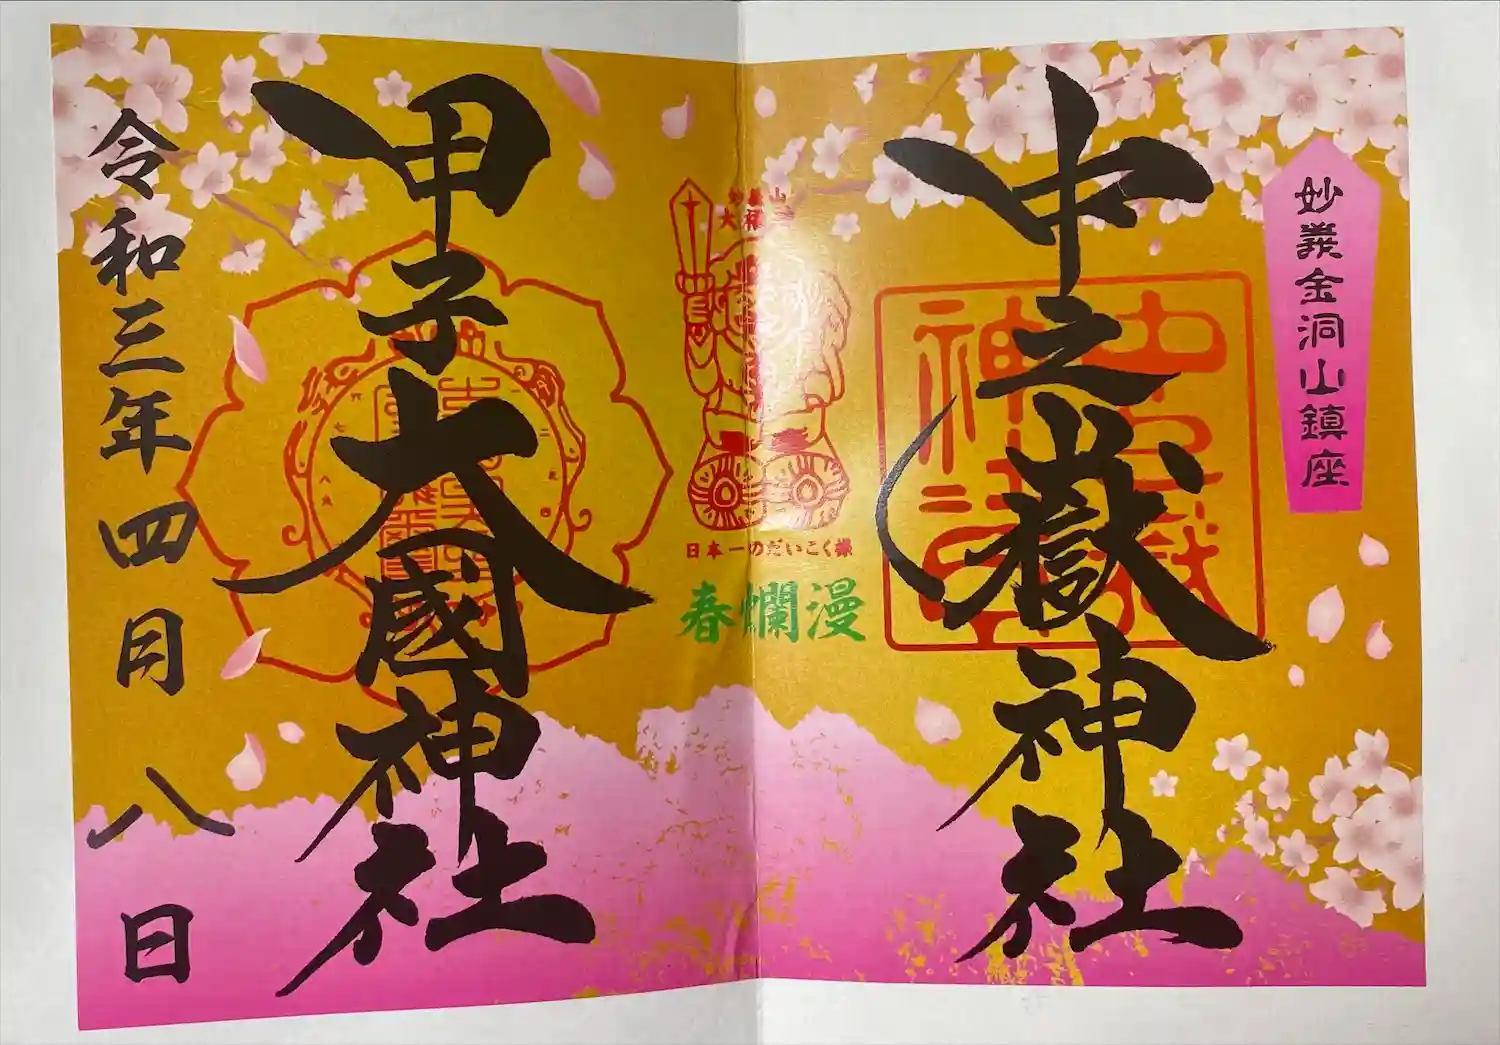 妙義金洞山鎮座
中之嶽神社
妙義山
大福
日本一のだいこく様
春爛漫
甲子大國神社
令和三年四月八日